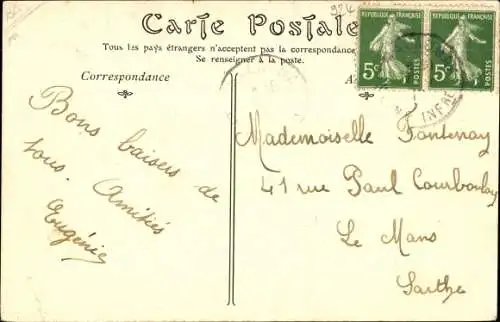 924
Carte Postale
Tous les pays étrangers n'acceptent pas la correspondance
Se renseigner à la poste.
Correspondance
A
RÉPUBLIQUE FRANÇAISE
5c
POSTES
RÉPUBLIQUE FRANÇAISE
5c
POSTES
INFRE
Bons baisers de
tous. Amitiés
Eugénie
Mademoiselle Fontenay
41 rue Paul Courboulay
Le Mans
Sarthe